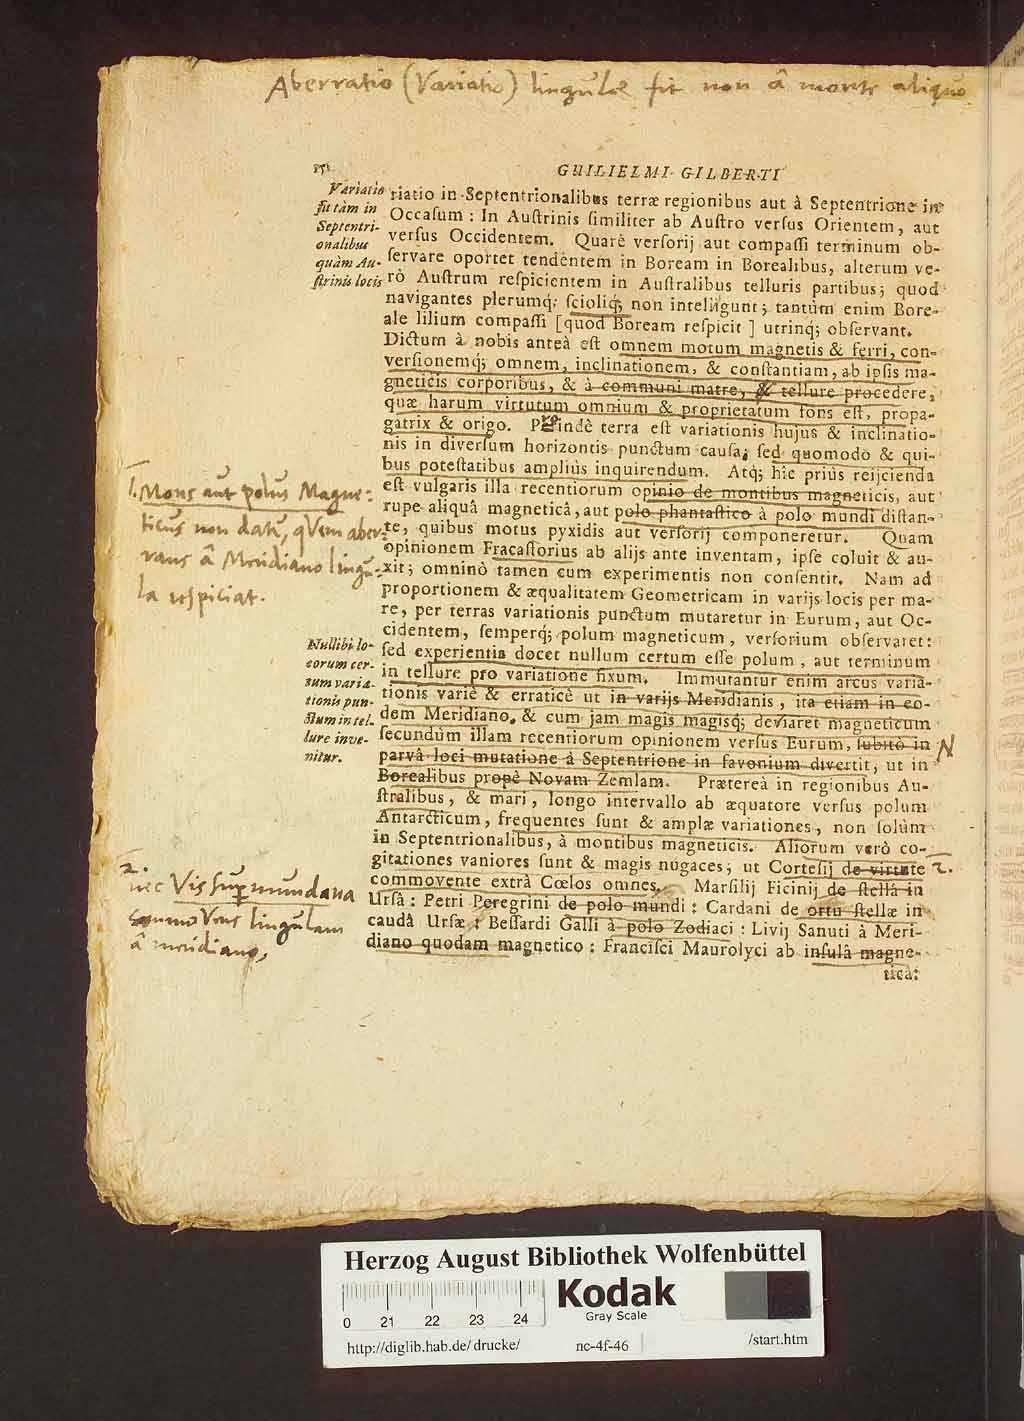 Aberratio (Variatio) lingulæ fit non â monte aliquo
GUILIELMI GILBERTI
Variatio
fit tàm in
Septentri-
onalibus
quàm Au-
ſtrinis locis
riatio in Septentrionalibus terræ regionibus aut à Septentrione in
Occaſum : In Auſtrinis ſimiliter ab Auſtro verſus Orientem, aut
verſus Occidentem. Quarè verſorij aut compaſſi terminum ob-
ſervare oportet tendentem in Boream in Borealibus, alterum ve-
rò Auſtrum reſpicientem in Auſtralibus telluris partibus; quod
navigantes plerumq́; ſcioliq́; non intelligunt; tantùm enim Bore-
ale lilium compaſſi [quod Boream reſpicit ] utrinq́; obſervant.
Dictum à nobis anteà eſt omnem motum magnetis & ferri, con-
verſionemq́; omnem, inclinationem, & conſtantiam, ab ipſis ma-
gneticis corporibus, & à communi matre, & tellure procedere,
quæ harum virtutum omnium & proprietatum fons eſt, propa-
gatrix & origo. Proindè terra eſt variationis hujus & inclinatio-
nis in diverſum horizontis punctum cauſa; ſed quomodò & qui-
bus poteſtatibus ampliùs inquirendum. Atq́; hîc priùs reijcienda
eſt vulgaris illa recentiorum opinio de montibus magneticis, aut
rupe aliquâ magneticâ, aut polo phantaſtico à polo mundi diſtan-
te, quibus motus pyxidis aut verſorij componeretur. Quam
opinionem Fracaſtorius ab alijs ante inventam, ipſe coluit & au-
xit; omninò tamen cum experimentis non conſentit. Nam ad
proportionem & æqualitatem Geometricam in varijs locis per ma-
re, per terras variationis punctum mutaretur in Eurum, aut Oc-
cidentem, ſemperq́; polum magneticum, verſorium obſervaret:
ſed experientia docet nullum certum eſſe polum, aut terminum
in tellure pro variatione fixum. Immutantur enim arcus varia-
tionis variè & erraticè ut in varijs Meridianis, ita etiam in eo-
dem Meridiano, & cum jam magis magisq́; deviaret magneticum
ſecundùm illam recentiorum opinionem verſus Eurum, ſubitò in
parvâ loci mutatione à Septentrione in favonium divertit, ut in
Borealibus propè Novam Zemlam. Prætereà in regionibus Au-
ſtralibus, & mari, longo intervallo ab æquatore verſus polum
Antarcticum, frequentes ſunt & amplæ variationes, non ſolùm
in Septentrionalibus, à montibus magneticis. Aliorum verò co-
gitationes vaniores ſunt & magis nugaces; ut Corteſij de virtute
commovente extrà Cœlos omnes, Marſilij Ficinij de ſtellâ in
Urſâ : Petri Peregrini de polo mundi : Cardani de ortu ſtellæ in
caudâ Urſæ : Beſſardi Galli à polo Zodiaci : Livij Sanuti à Meri-
diano quodam magnetico : Franciſci Maurolyci ab inſulâ magne-
tica:
1. Mons aut polus Magne-
ticus non datur, qVem aber-
rans â Meridiano lingu-
la respiciat.
Nullibi lo-
corum cer-
tum varia-
tionis pun-
ctum in tel-
lure inve-
nitur.
N
2.
2.
nec Vis supermundana
commoVens lingulam
â meridiano,
Herzog August Bibliothek Wolfenbüttel
Kodak
Gray Scale
0 21 22 23 24
http://diglib.hab.de/drucke/ nc-4f-46 /start.htm